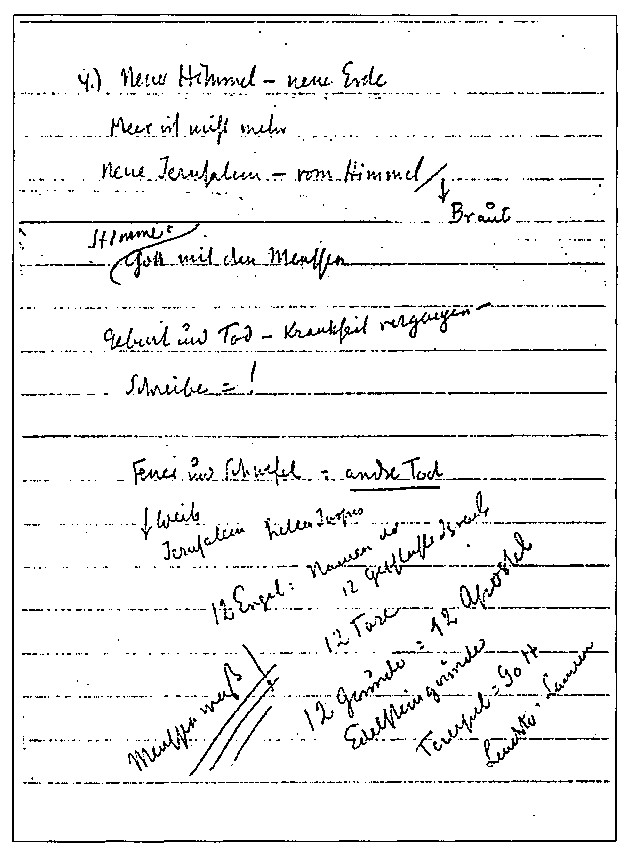 4.) Neuer Himmel – neue Erde
Meer ist nicht mehr
neue Jerusalem – vom Himmel
↓
Braut
Stimme:
Gott mit den Menschen
Geburt und Tod – Krankheit vergangen –
Schreibe = !
Feuer und Schwefel = andre Tod
↓ Weib
Jerusalem heller Jaspis
12 Engel: Namen der
12 Geschlechter Israels
12 Tore
12 Gründe = 12 Apostel
Edelsteingründe
Tempel = Gott
Leuchte = Lamm
Menschen maß!